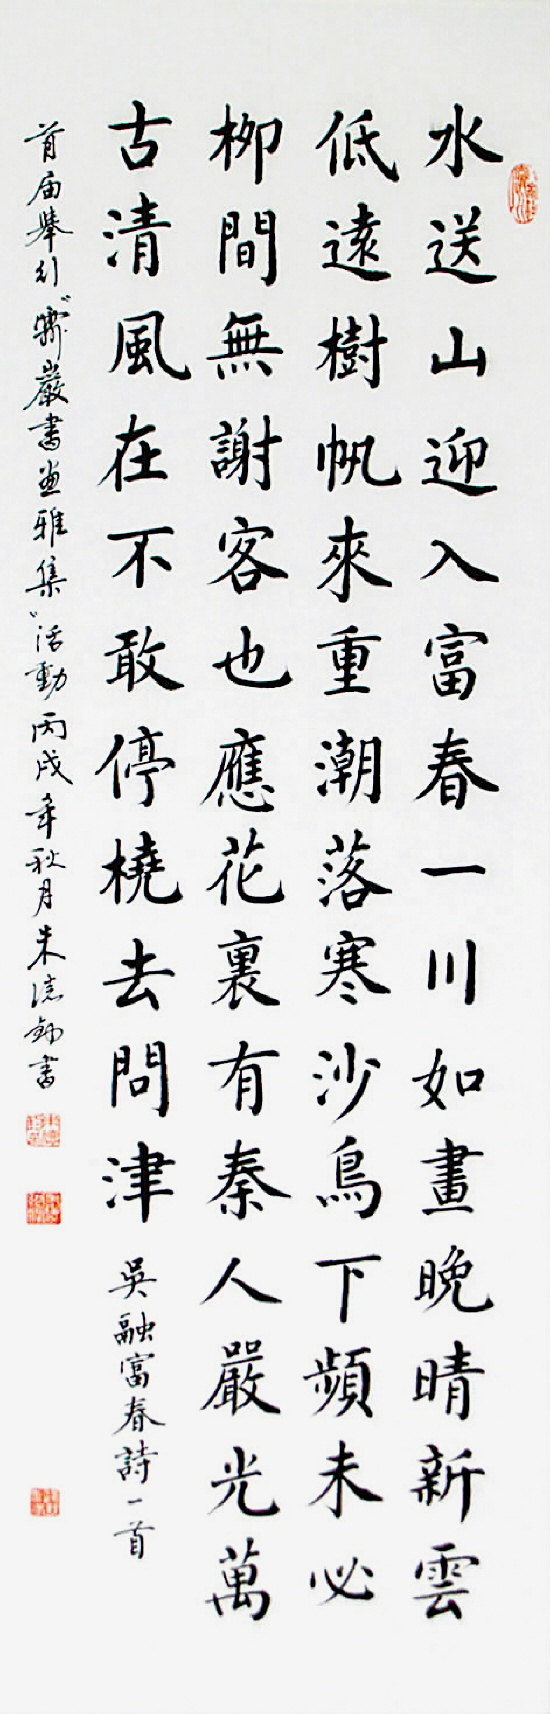 水送山迎入富春一川如畫晚晴新雲
低遠樹帆來重潮落寒沙鳥下頻未必
柳間無謝客也應花裏有秦人嚴光萬
古清風在不敢停橈去問津 吳融富春詩一首
首届舉行“巖書画雅集”活動丙戌年秋月朱書